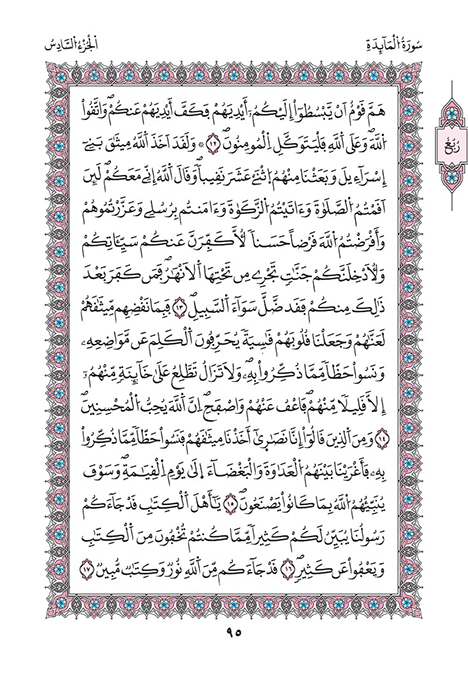 الجُزْءُ السَّادِسُ
سُورَةُ الْمَآئِدَةِ
هَمَّ قَوْمٌ اَنْ يَّبْسُطُوٓاْ إِلَيْكُمُۥٓ أَيْدِيَهُمْ فَكَفَّ أَيْدِيَهُمْ عَنكُمْۖ وَاتَّقُواْ
اللَّهَۖ وَعَلَى اَللَّهِ فَلْيَتَوَكَّلِ اِلْمُومِنُونَۖ ١٢ وَلَقَدَ اَخَذَ اَللَّهُ مِيثَٰقَ بَنِےٓ
إِسْرَآءِيلَ وَبَعَثْنَا مِنْهُمُ اُثْنَےْ عَشَرَ نَقِيباٗۖ وَقَالَ اَللَّهُ إِنِّے مَعَكُمْۖ لَئِنَ
اَقَمْتُمُ اُلصَّلَوٰةَ وَءَاتَيْتُمُ اُلزَّكَوٰةَ وَءَامَنتُم بِرُسُلِے وَعَزَّرْتُمُوهُمْ
وَأَقْرَضْتُمُ اُللَّهَ قَرْضاً حَسَناٗ لَّأُكَفِّرَنَّ عَنكُمْ سَيِّـَٔاتِكُمْ
وَلَأُدْخِلَنَّكُمْ جَنَّٰتٖ تَجْرِے مِن تَحْتِهَا اَلَانْهَٰرُۖ فَمَن كَفَرَ بَعْدَ
ذَٰلِكَ مِنكُمْ فَقَد ضَّلَّ سَوَآءَ اَلسَّبِيلِۖ ١٣ فَبِمَا نَقْضِهِم مِّيثَٰقَهُمْ
لَعَنَّٰهُمْ وَجَعَلْنَا قُلُوبَهُمْ قَٰسِيَةٗ يُحَرِّفُونَ اَلْكَلِمَ عَن مَّوَاضِعِهِۦ
وَنَسُواْ حَظّاٗ مِّمَّا ذُكِّرُواْ بِهِۦۖ وَلَا تَزَالُ تَطَّلِعُ عَلَىٰ خَآئِنَةٖ مِّنْهُمُۥٓ
إِلَّا قَلِيلاٗ مِّنْهُمْۖ فَاعْفُ عَنْهُمْ وَاصْفَحِۖ اِنَّ اَللَّهَ يُحِبُّ اُلْمُحْسِنِينَۖ
١٤ وَمِنَ اَلذِينَ قَالُوٓاْ إِنَّا نَصَٰرَىٰٓ أَخَذْنَا مِيثَٰقَهُمْ فَنَسُواْ حَظّاٗ مِّمَّا ذُكِّرُواْ
بِهِۦ فَأَغْرَيْنَا بَيْنَهُمُ اُلْعَدَاوَةَ وَالْبَغْضَآءَ اِلَىٰ يَوْمِ اِلْقِيَٰمَةِۖ وَسَوْفَ
يُنَبِّئُهُمُ اُللَّهُ بِمَا كَانُواْ يَصْنَعُونَۖ ١٥ يَٰٓأَهْلَ اَلْكِتَٰبِ قَدْ جَآءَكُمْ
رَسُولُنَا يُبَيِّنُ لَكُمْ كَثِيراٗ مِّمَّا كُنتُمْ تُخْفُونَ مِنَ اَلْكِتَٰبِ
وَيَعْفُواْ عَن كَثِيرٖۖ ١٦ قَدْ جَآءَكُم مِّنَ اَللَّهِ نُورٞ وَكِتَٰبٞ مُّبِينٞ ١٧
رُبُعْ
٩٥